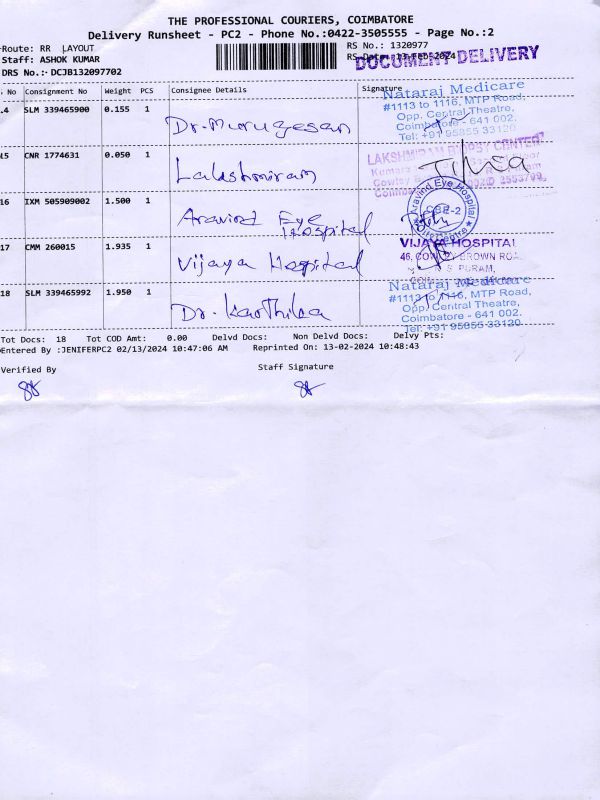 THE PROFESSIONAL COURIERS, COIMBATORE
Delivery Runsheet - PC2 - Phone No.:0422-3505555 - Page No.:2
Route: RR LAYOUT
RS No.: 1320977
Staff: ASHOK KUMAR
RS Date: 13-Feb-2024
DOCUMENT DELIVERY
DRS No.:- DCJB132097702
. No Consignment No Weight PCS Consignee Details Signature
.4 SLM 339465900 0.155 1 Dr. Murugesan
Nataraj Medicare
#1113 to 1116, MTP Road,
Opp. Central Theatre,
Coimbatore - 641 002.
Tel: +91 95855 33120
15 CNR 1774631 0.050 1 Lakshmiram
LAKSHMIRAM BIOPSY CENTER
2553799
16 IXM 505909002 1.500 1 Aravind Eye Hospital
Aravind Eye Hospital
CBE-2
17 CMM 260015 1.935 1 Vijaya Hospital
VIJAYA HOSPITAL
46, COWLEY BROWN ROAD
R.S. PURAM,
18 SLM 339465992 1.950 1 Dr. Karthika
Nataraj Medicare
#1113 to 1116, MTP Road,
Opp. Central Theatre,
Coimbatore - 641 002.
Tel: +91 95855 33120
Tot Docs: 18 Tot COD Amt: 0.00 Delvd Docs: Non Delvd Docs: Delvy Pts:
Entered By :JENIFERPC2 02/13/2024 10:47:06 AM Reprinted On: 13-02-2024 10:48:43
Verified By Staff Signature